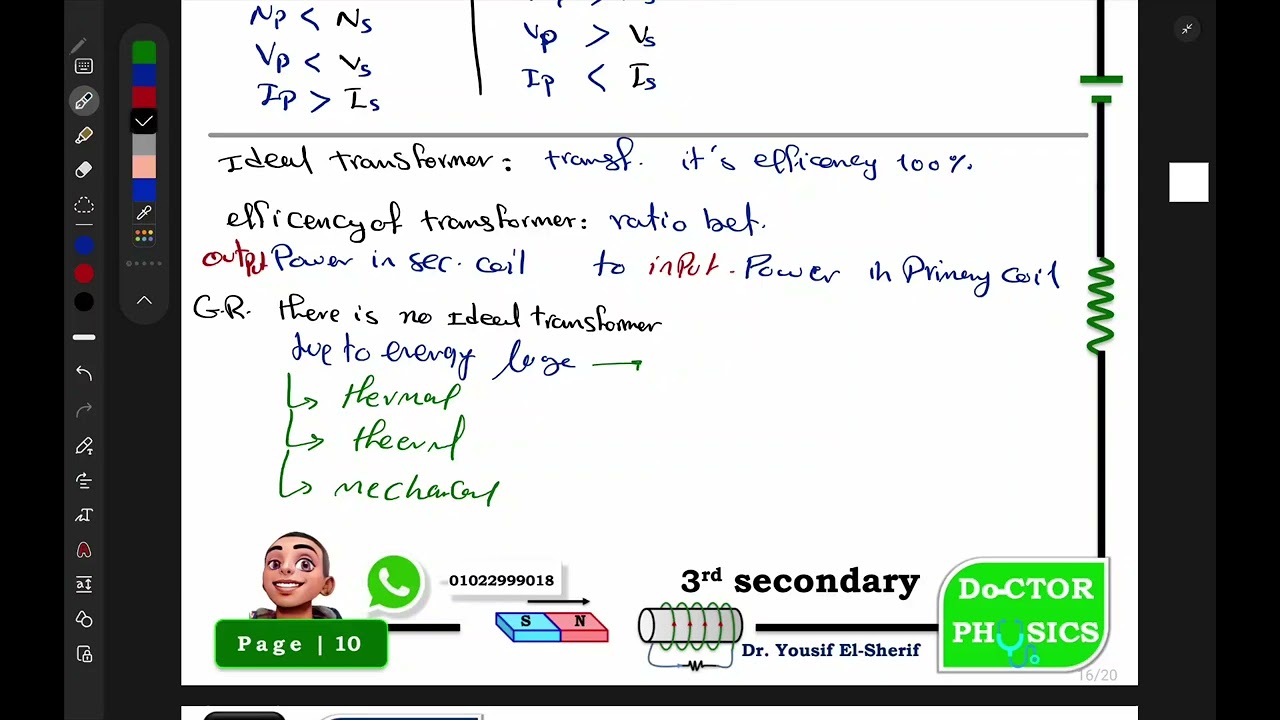 Np < Ns
Vp < Vs
Ip > Is
Vp > Vs
Ip < Is
Ideal transformer: transf. it's efficency 100%.
efficency of transformer: ratio bet.
output Power in sec. coil to input. Power in Primary coil
G.R. there is no Ideal transformer
due to energy
thermal
mechanical
01022999018
3rd secondary
S N
Page | 10
Dr. Yousif El-Sherif
DoCTOR
PHYSICS
16/20